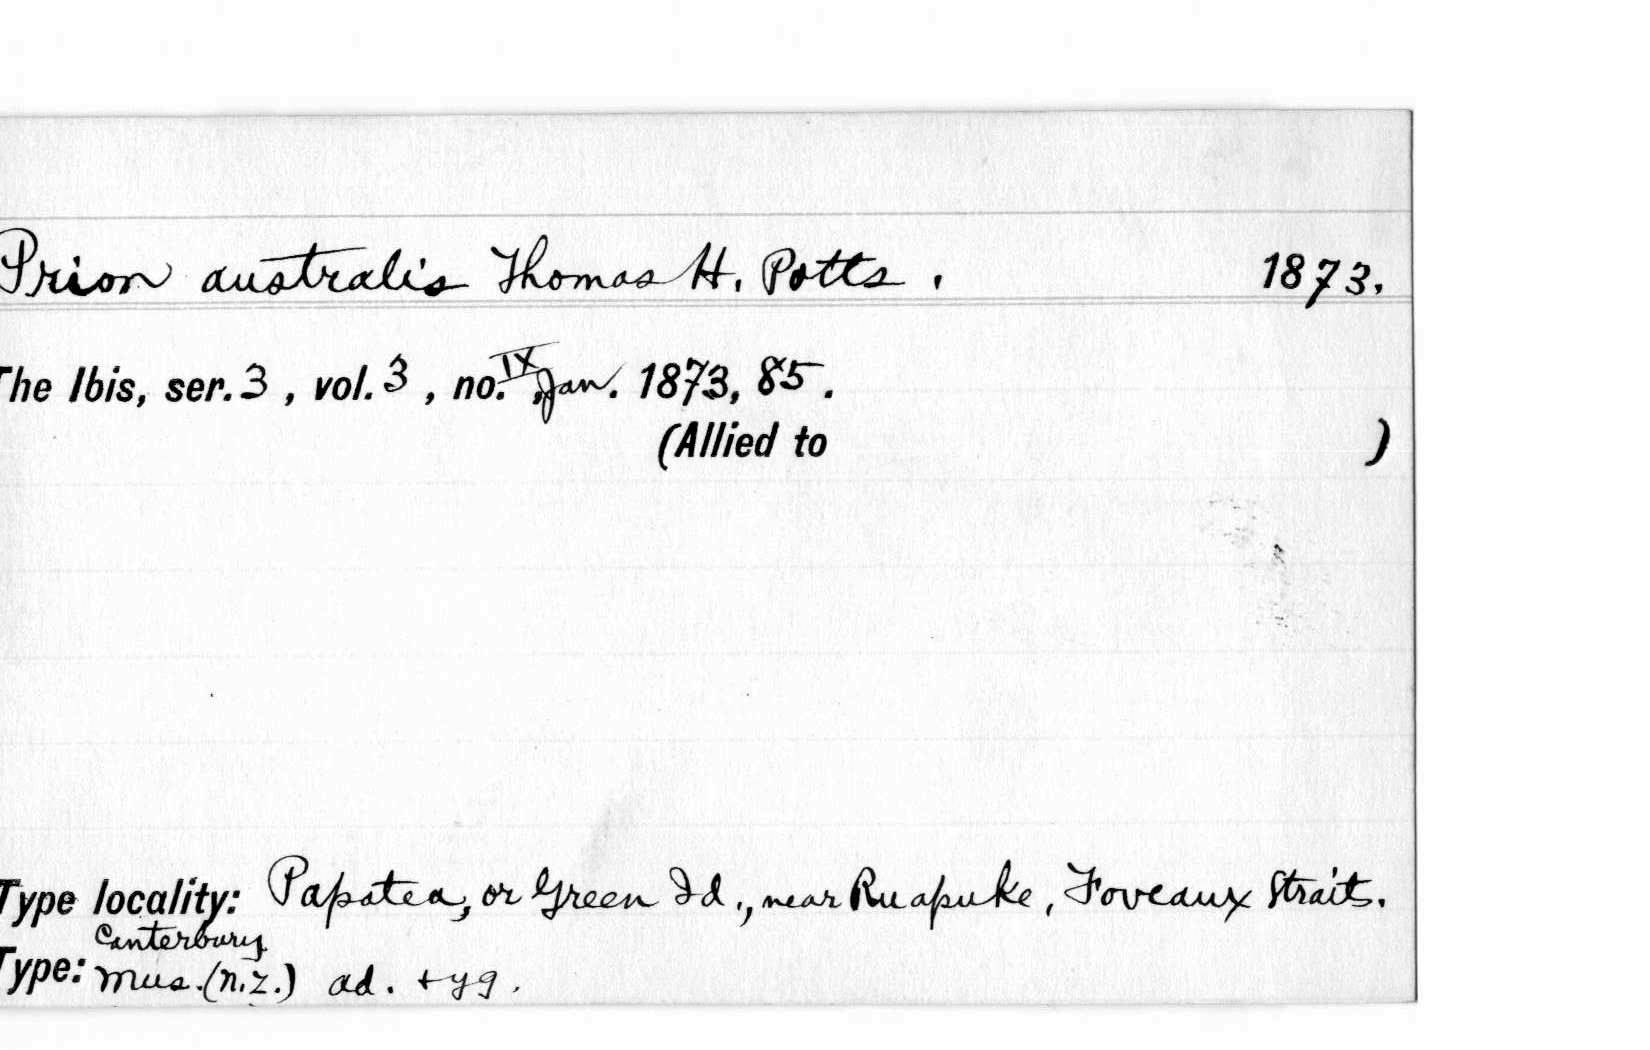 Prion australis Thomas H. Potts. 1873.
The Ibis, ser. 3, vol. 3, no. IX, Jan. 1873, 85.
(Allied to )
Type locality: Papatea, or Green Id., near Ruapuke, Foveaux Strait.
Type: Canterbury Mus. (N.Z.) ad. + yg.